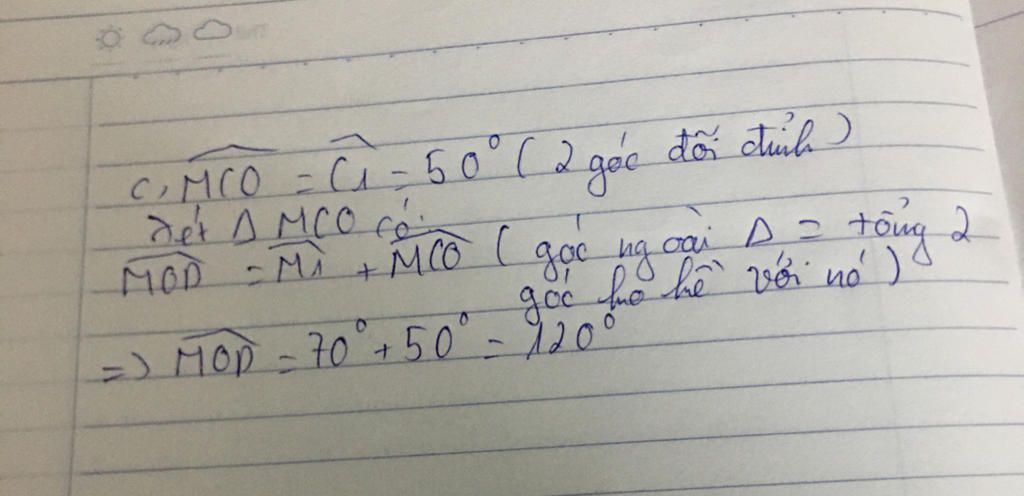 c, MCO = C1 = 50° (2 góc đối đỉnh)
Xét Δ MCO có:
MOD = M1 + MCO (góc ngoài Δ = tổng 2
góc ko kề với nó)
=> MOD = 70° + 50° = 120°